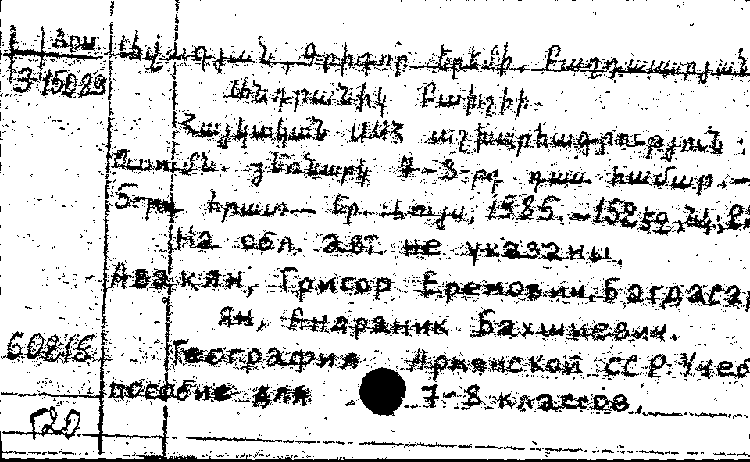 Հրպ
Ավագյան, Գրիգոր Երեմի. Բաղդասարյան
Յ 15089
Անդրանիկ Բախշիի.
Հայկական ՍՍՀ աշխարհագրություն :
Ուսումն. ձեռնարկ 7-8-րդ դաս. համար. –
5-րդ հրատ – Եր. : Լույս, 1985. – 152 էջ,
На обл. авт. не указаны.
Авакян, Григор Еремович. Багдасар
ян, Андраник Бахшиевич.
60816
География Армянской ССР : Учеб
пособие для 7-8 классов.
Г20